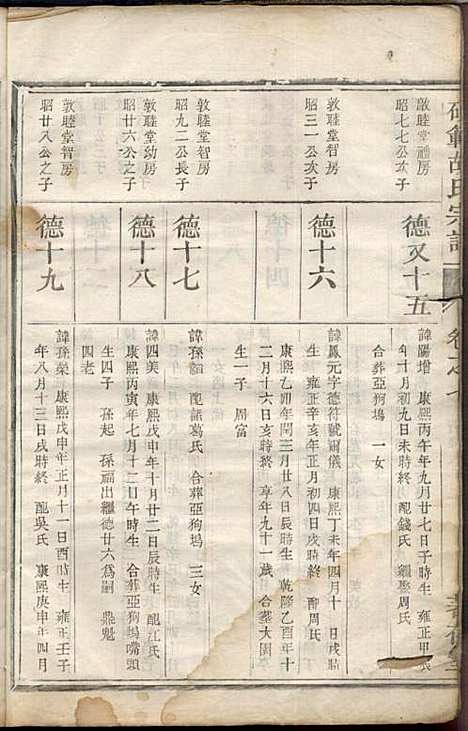 敦睦堂禮房
昭七七公次子
德又十五
諱陽增 康熙丙午年九月廿七日子時生 雍正甲
年十月初九日未時終 配錢氏 繼娶周氏
合葬亞狗塢 一女
敦睦堂智房
昭三一公次子
德十六
諱鳳元字德符號爾儀 康熙丁未年四月十日戌時
生 雍正辛亥年正月初四日戌時終 配周氏
康熙乙卯年閏三月廿八日辰時生 乾隆乙酉年十
二月十六日亥時終 享年九十一歲 合葬大園
生一子 周富
敦睦堂智房
昭九二公長子
德十七
諱孫韶 配諸葛氏 合葬亞狗塢 三女
敦睦堂幼房
昭廿六公之子
德十八
諱四美 康熙戊申年十月廿二日辰時生 配江氏
康熙丙寅年七月十二日午時生 合葬亞狗塢嘴頭
生四子 孫起 孫福出繼德廿六爲嗣 鼎魁
四老
敦睦堂智房
昭廿八公之子
德十九
諱孫榮 康熙戊申年正月十一日酉時生 雍正壬子
年八月十三日戌時終 配吳氏 康熙庚申年四月
胡氏宗譜
卷之十